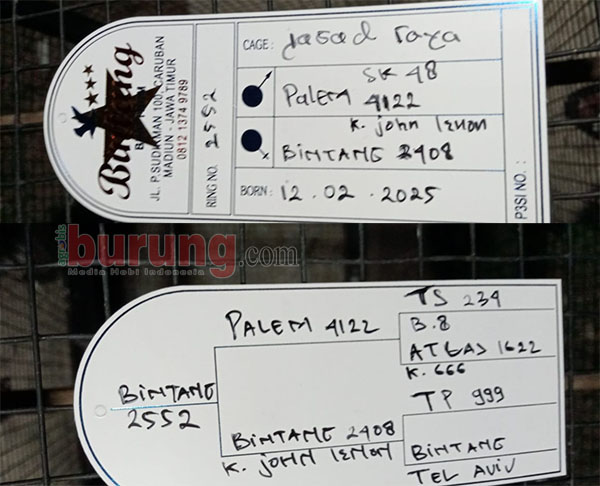 Bintang
B
JL. P.SUDIRMAN 100, CARUBAN
MADIUN - JAWA TIMUR
0812 1374 9789
RING NO. 2552
CAGE : jasad raya
SK 48
PALEM 4122
K. john lenon
BINTANG 2408
BORN : 12.02.2025
P3SI NO. :
agrobis
burung.com
Media Hobi Indonesia
BINTANG
2552
PALEM 4122
BINTANG 2408
K. JOHN LENON
TS 234
B.8
ATLAS 1622
K. 666
TP 999
BINTANG
TEL AVIV